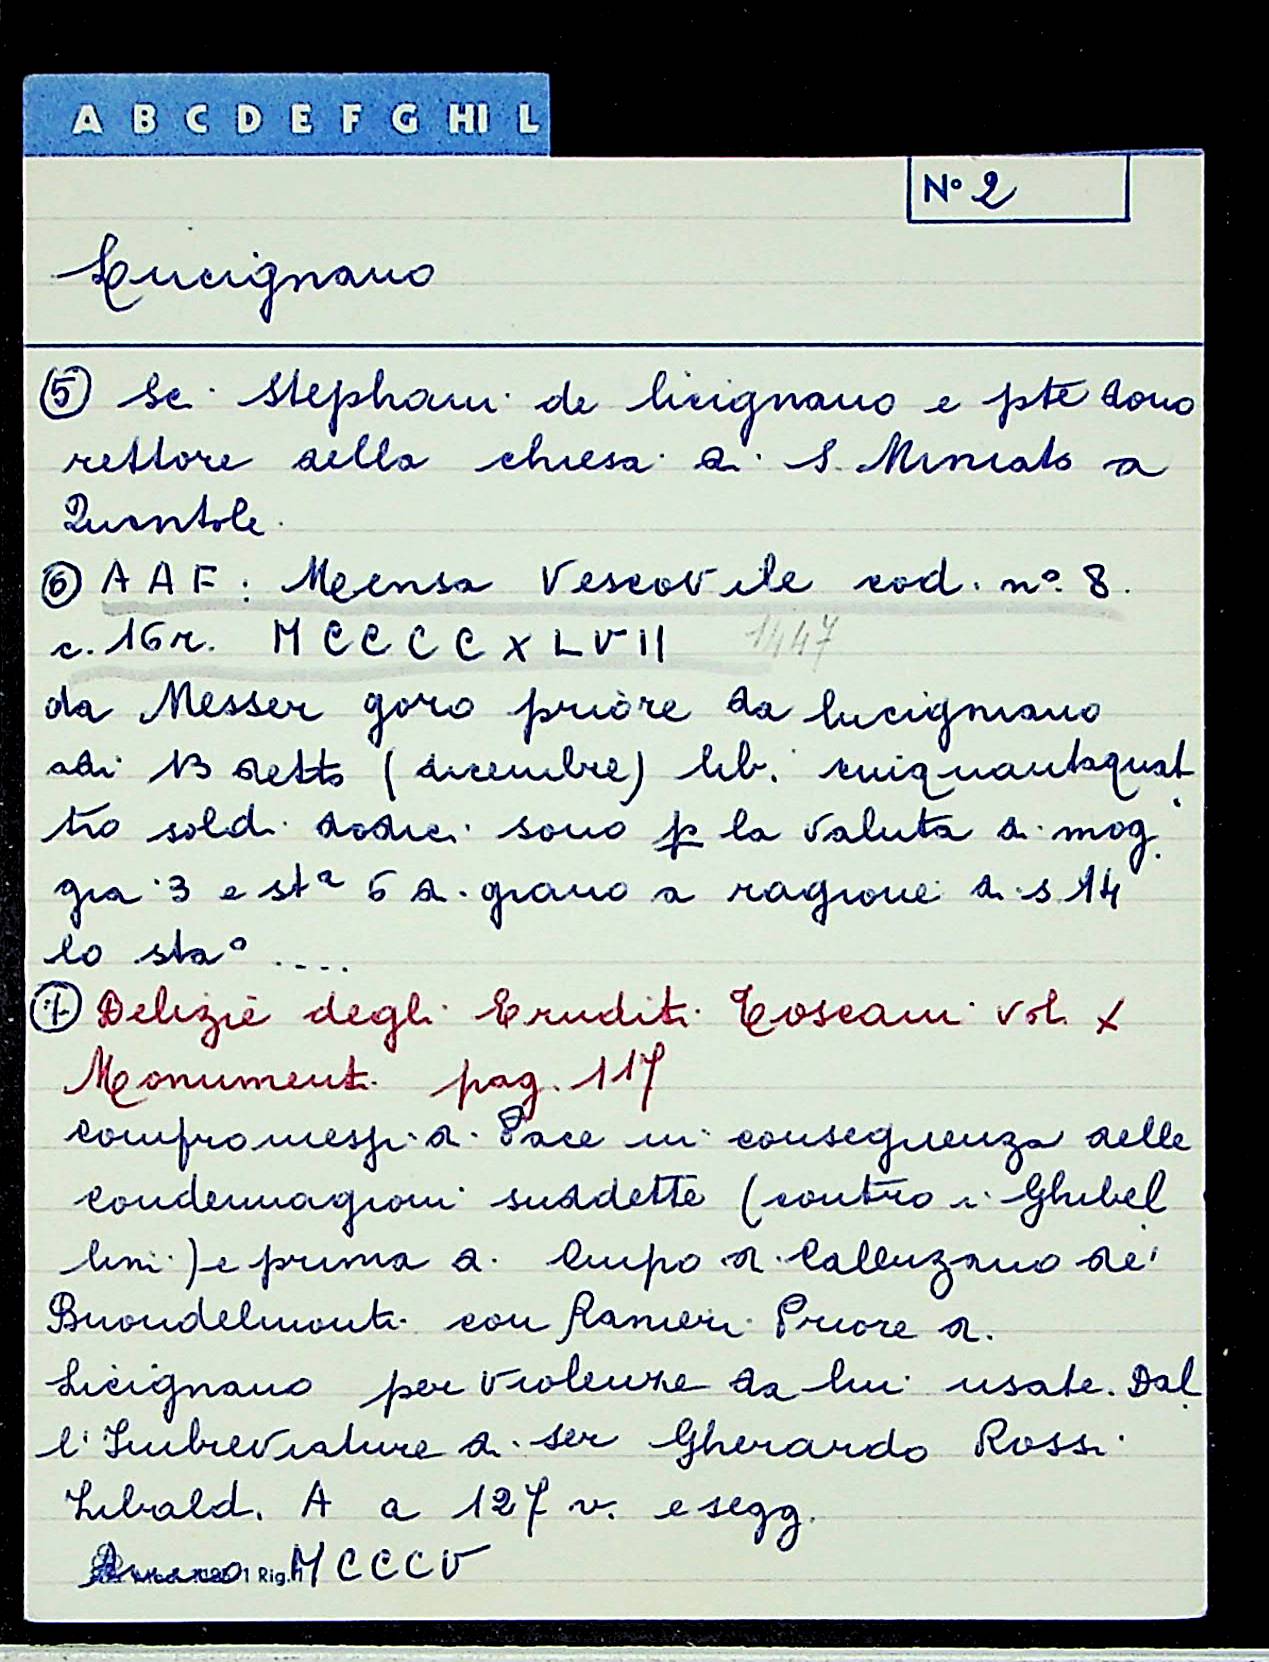 A B C D E F G HI L
N° 2
Lucignano
⑤ Sci Stephani de licignano e pte dono
rettore della chiesa di S. Miniato a
Quintole.
⑥ A A F : Mensa Vescovile cod. n° 8.
c. 16 r. M C C C C X L V I I 1447
da Messer goro priore da lucigniano
adi 13 detto (dicembre) lib. cinquantaquat
tro soldi dodici sono p la valuta di mog
gia 3 e sta 6 di grano a ragione di s 14
lo sta° ....
⑦ Delizie degli Eruditi Toscani vol. X
Monumenti pag. 117
compromessi di Pace in conseguenza delle
condennagioni suddette (contro i Ghibel
lini) e prima di Lupo di Calluzano de'
Buondelmonti con Ranieri Priore di
Licignano per violenze da lui usate. Dal
l'Imbreviature di ser Gherardo Rossi
Zibald. A a 127 v. e segg.
Anno MCCCV
1 Rig.